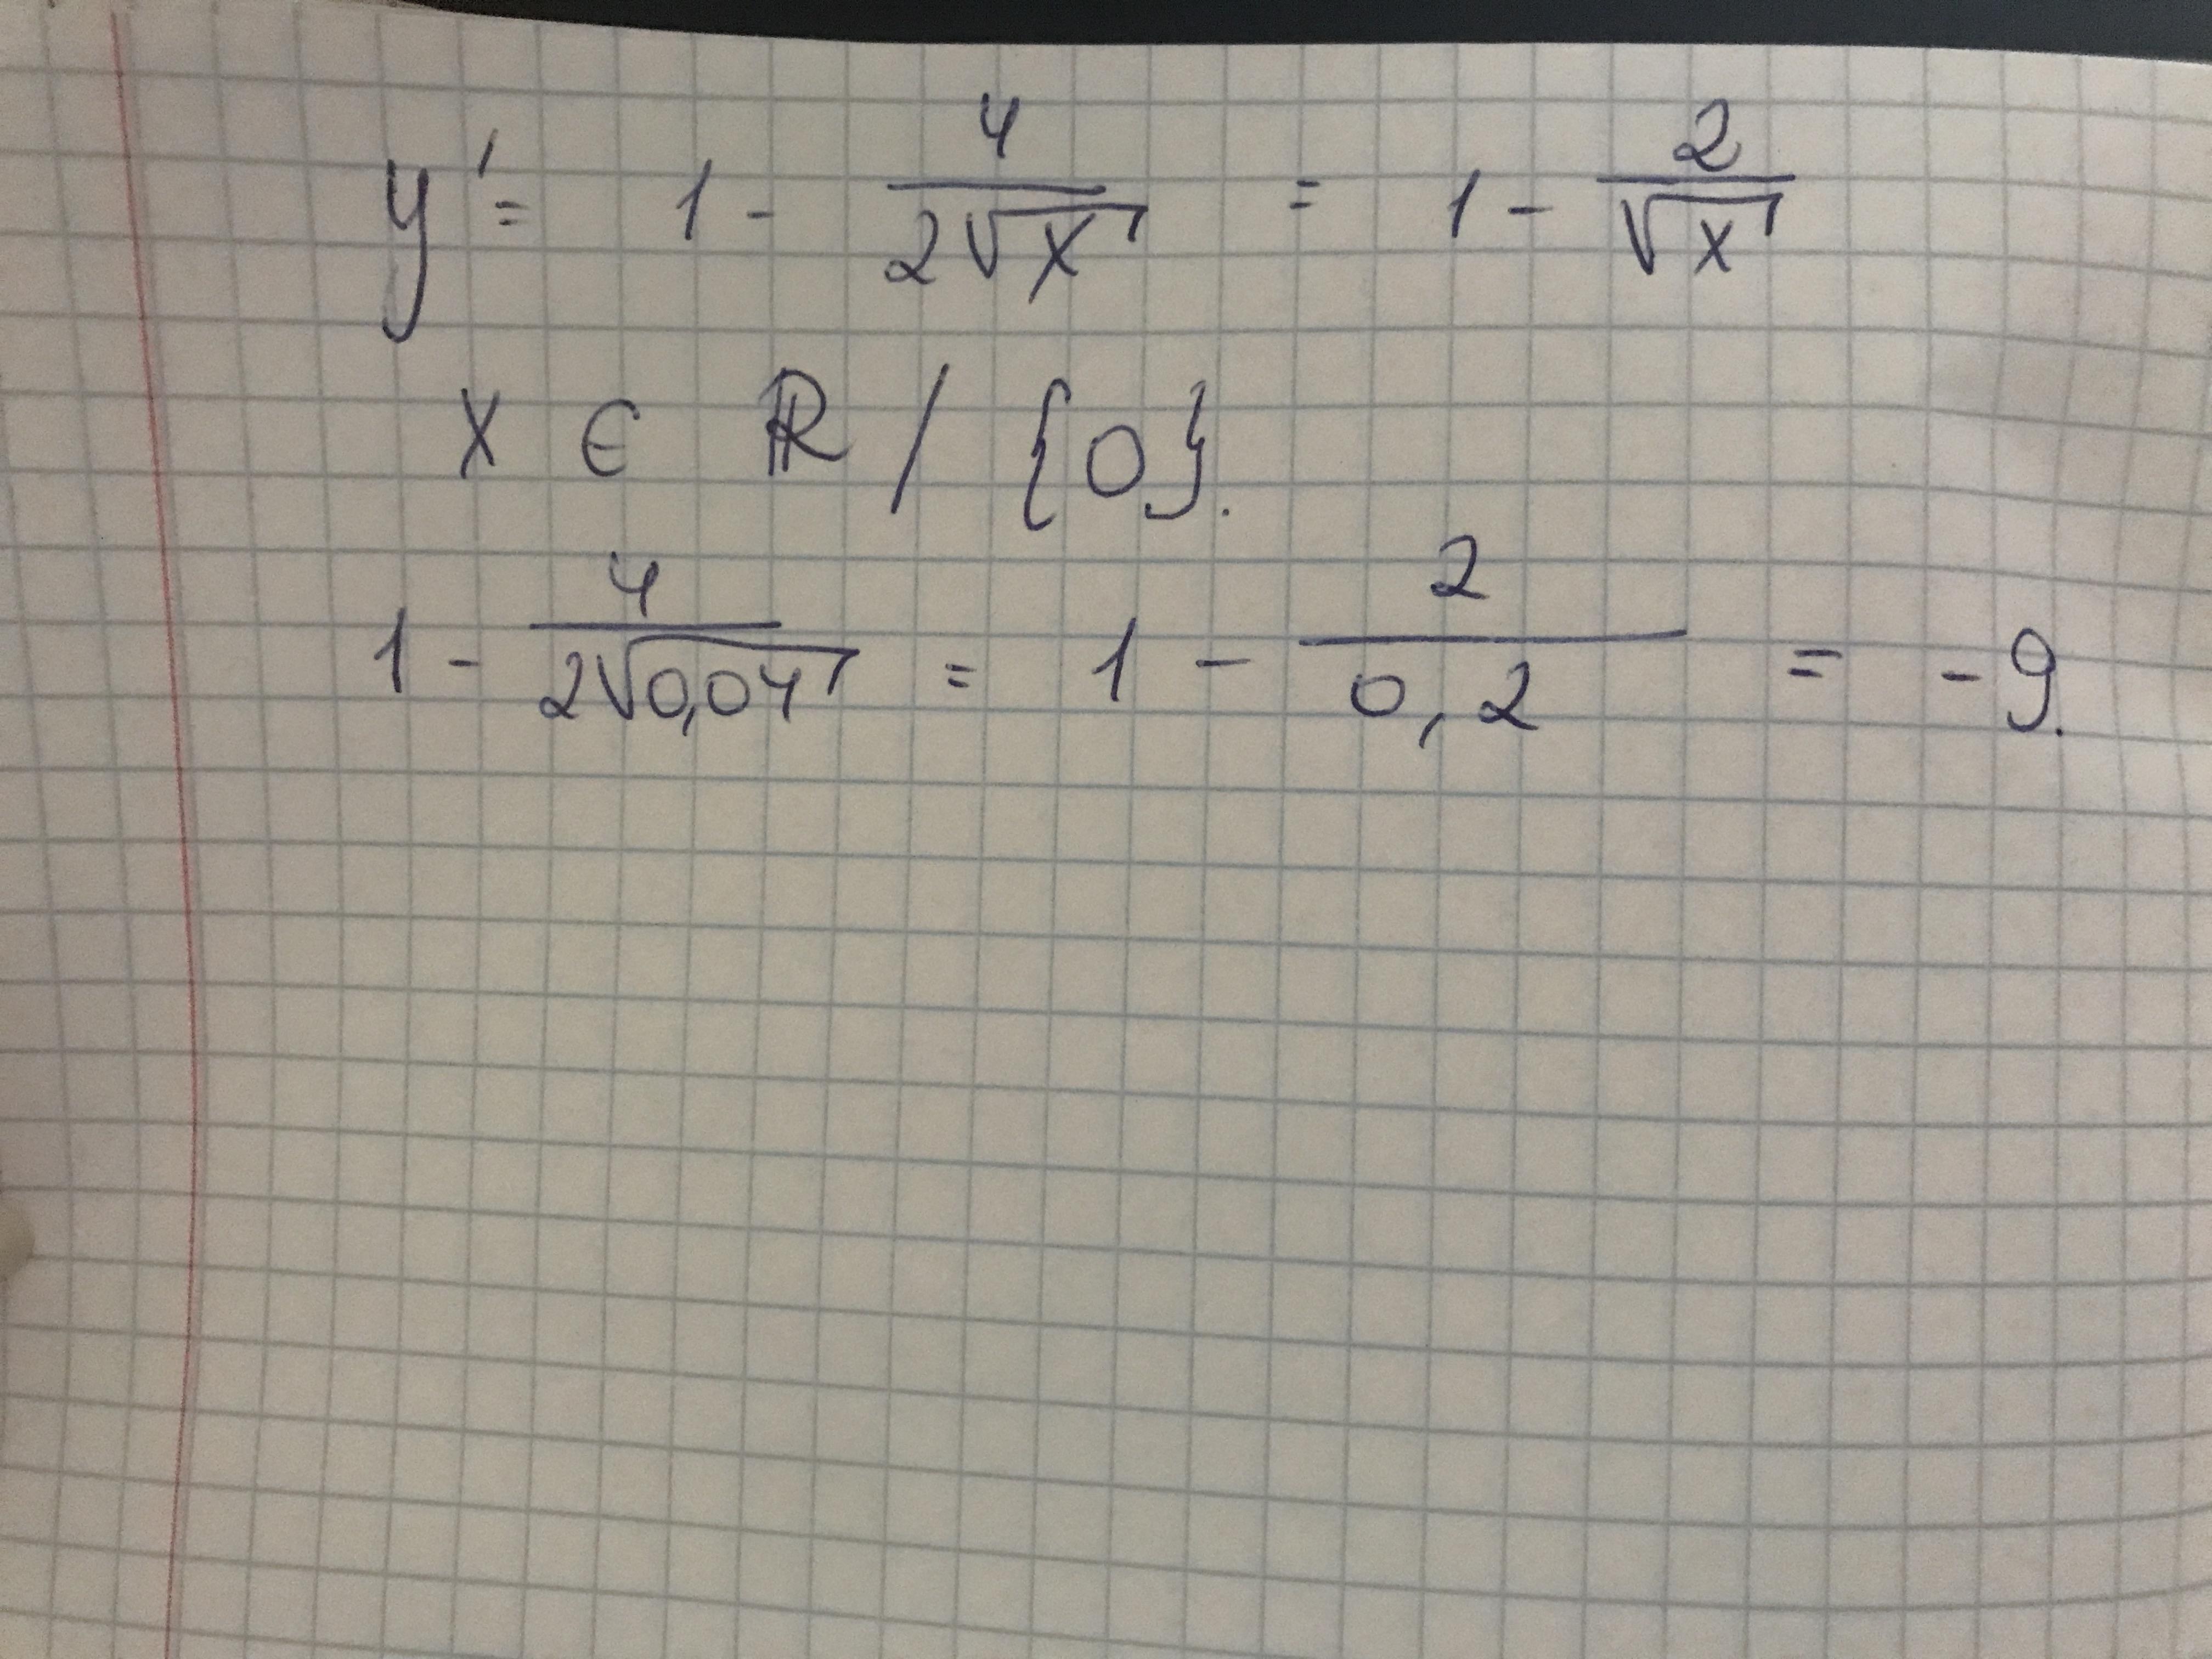 y' = 1 - 4/(2√x) = 1 - 2/√x
x ∈ ℝ / {0}.
1 - 4/(2√0,04) = 1 - 2/0,2 = -9.